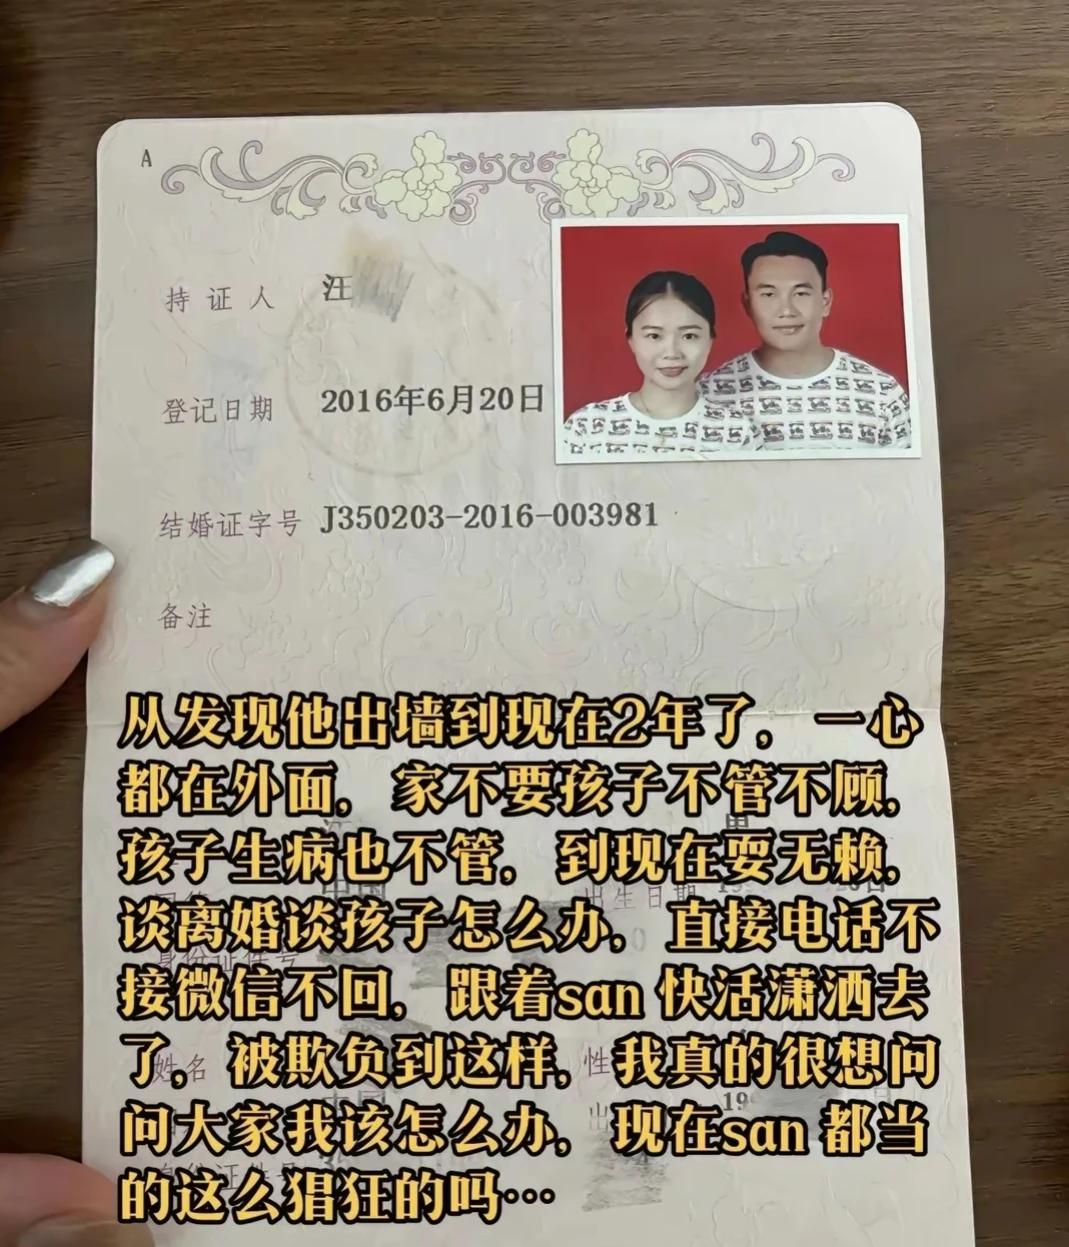 A
持证人 汪
登记日期 2016年6月20日
结婚证字号 J350203-2016-003981
备注
从发现他出墙到现在2年了，一心
都在外面，家不要孩子不管不顾，
孩子生病也不管，到现在耍无赖，
谈离婚谈孩子怎么办，直接电话不
接微信不回，跟着san 快活潇洒去
了，被欺负到这样，我真的很想问
问大家我该怎么办，现在san 都当
的这么猖狂的吗…
男
中国 出生日期
身份证件号
姓名 性
身份证件号